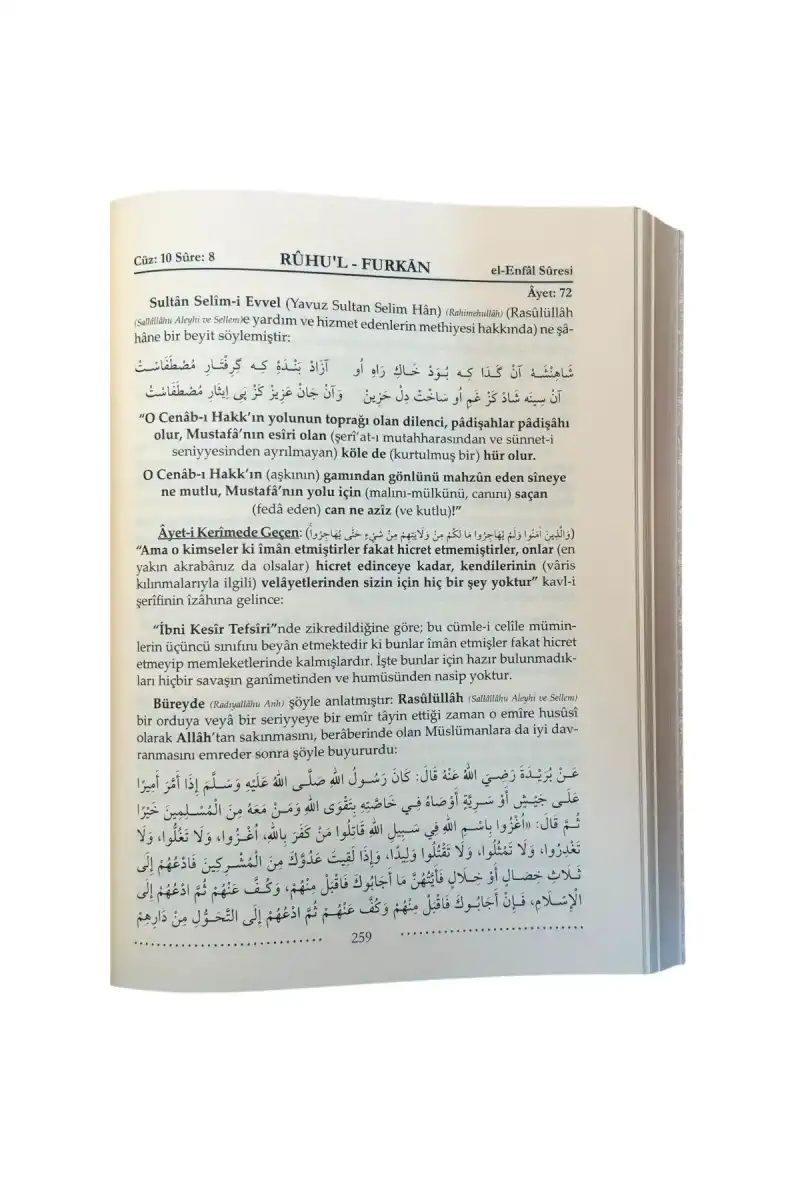 Cüz: 10 Sûre: 8 RÛHU'L - FURKĀN el-Enfâl Sûresi
Âyet: 72
Sultân Selîm-i Evvel (Yavuz Sultan Selim Hân) (Rahimehullâh) (Rasûlüllâh
(Sallâllâhu Aleyhi ve Sellem)e yardım ve hizmet edenlerin methiyesi hakkında) ne şâ-
hâne bir beyit söylemiştir:
شَاهِنْشَهْ آنْ گَدَا كِه بُوَدْ خَاكِ رَاهِ اُو آزَادْ بَنْدَهْ كِه گِرِفْتَارِ مُصْطَفَاسْتْ
آنْ سِينَه شَادْ كَزْ غَمِ اُو سَاخْتْ دِلْ حَزِينْ وَآنْ جَانْ عَزِيزْ كَزْ پَىِ اِيثَارِ مُصْطَفَاسْتْ
"O Cenâb-ı Hakk'ın yolunun toprağı olan dilenci, pâdişahlar pâdişâhı
olur, Mustafâ'nın esîri olan (şerî'at-ı mutahharasından ve sünnet-i
seniyyesinden ayrılmayan) köle de (kurtulmuş bir) hür olur.
O Cenâb-ı Hakk'ın (aşkının) gamından gönlünü mahzûn eden sîneye
ne mutlu, Mustafâ'nın yolu için (malını-mülkünü, canını) saçan
(fedâ eden) can ne azîz (ve kutlu)!"
Âyet-i Kerîmede Geçen: (وَالَّذِينَ اٰمَنُوا وَلَمْ يُهَاجِرُوا مَا لَكُمْ مِنْ وَلَايَتِهِمْ مِنْ شَيْءٍ حَتَّى يُهَاجِرُواۚ)
"Ama o kimseler ki îmân etmiştirler fakat hicret etmemiştirler, onlar (en
yakın akrabânız da olsalar) hicret edinceye kadar, kendilerinin (vâris
kılınmalarıyla ilgili) velâyetlerinden sizin için hiç bir şey yoktur" kavl-i
şerîfinin îzâhına gelince:
"İbni Kesîr Tefsîri"nde zikredildiğine göre; bu cümle-i celîle mümin-
lerin üçüncü sınıfını beyân etmektedir ki bunlar îmân etmişler fakat hicret
etmeyip memleketlerinde kalmışlardır. İşte bunlar için hazır bulunmadık-
ları hiçbir savaşın ganîmetinden ve humüsünden nasip yoktur.
Büreyde (Radıyallâhu Anh) şöyle anlatmıştır: Rasûlüllâh (Sallâllâhu Aleyhi ve Sellem)
bir orduya veyâ bir seriyyeye bir emîr tâyin ettiği zaman o emîre husûsî
olarak Allâh'tan sakınmasını, berâberinde olan Müslümanlara da iyi dav-
ranmasını emreder sonra şöyle buyururdu:
عَـنْ بُرَيْـدَةَ رَضِـيَ اللهُ عَنْهُ قَالَ: كَانَ رَسُـولُ اللهِ صَلَّـى اللهُ عَلَيْهِ وَسَـلَّمَ إِذَا أَمَّرَ أَمِيرًا
عَلَـى جَيْـشٍ أَوْ سَـرِيَّةٍ أَوْصَاهُ فِـي خَاصَّتِهِ بِتَقْوَى اللهِ وَمَـنْ مَعَهُ مِنَ الْمُسْـلِمِينَ خَيْرًا
ثُـمَّ قَالَ: «اُغْزُوا بِاسْـمِ اللهِ فِي سَـبِيلِ اللهِ قَاتِلُوا مَنْ كَفَرَ بِاللهِ، اُغْـزُوا، وَلَا تَغُلُّوا، وَلَا
تَغْدِرُوا، وَلَا تَمْثُلُوا، وَلَا تَقْتُلُوا وَلِيدًا، وَإِذَا لَقِيتَ عَدُوَّكَ مِنَ الْمُشْـرِكِينَ فَادْعُهُمْ إِلَى
ثَـلَاثِ خِصَـالٍ أَوْ خِـلَالٍ فَأَيَّتُهُنَّ مَا أَجَابُوكَ فَاقْبَلْ مِنْهُمْ، وَكُـفَّ عَنْهُمْ ثُمَّ ادْعُهُمْ إِلَى
الْإِسْـلَامِ، فَـإِنْ أَجَابُـوكَ فَاقْبَلْ مِنْهُمْ وَكُفَّ عَنْهُـمْ ثُمَّ ادْعُهُمْ إِلَى التَّحَـوُّلِ مِنْ دَارِهِمْ
259